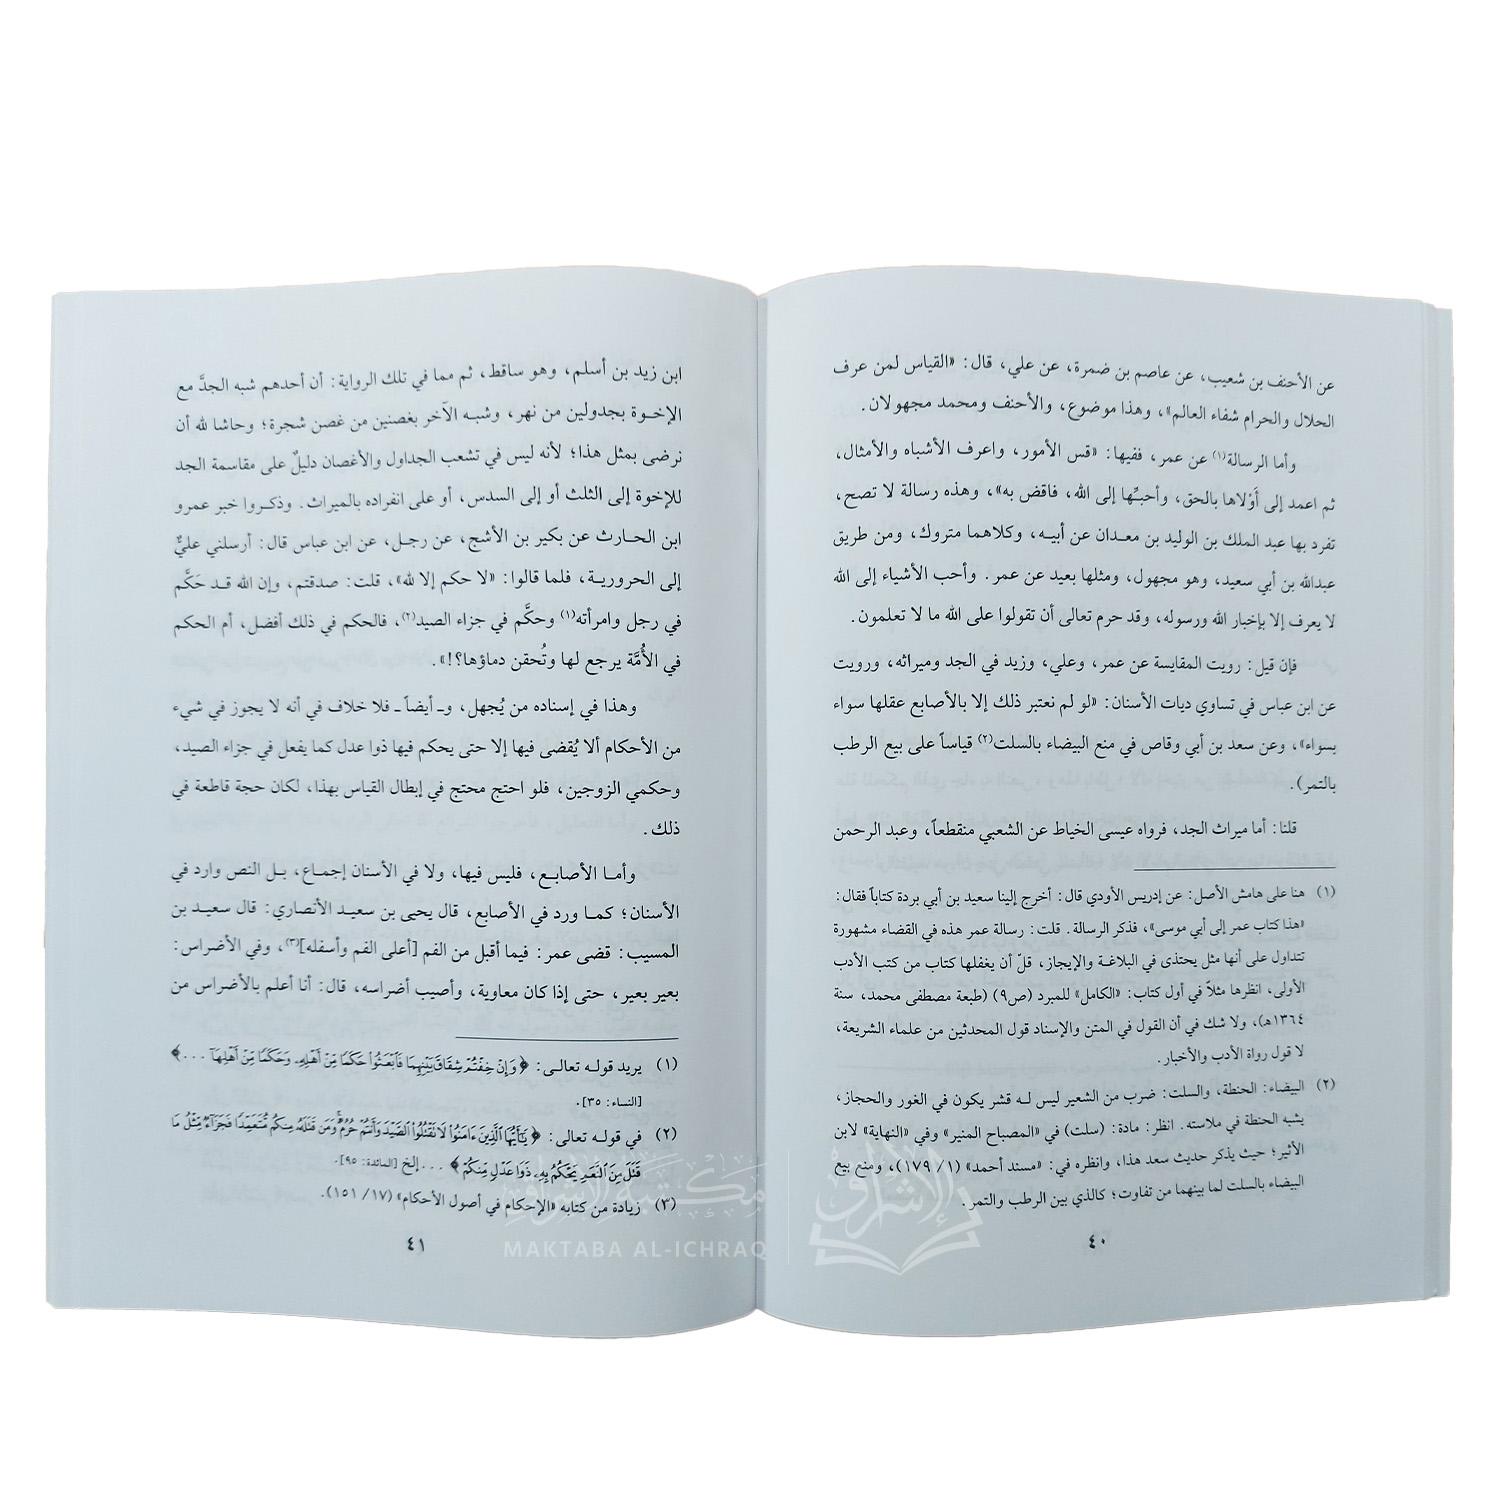 عن الأحنف بن شعيب، عن عاصم بن ضمرة، عن علي، قال: «القياس لمن عرف
الحلال والحرام شفاء العالم»، وهذا موضوع، والأحنف ومحمد مجهولان.
وأما الرسالة(١) عن عمر، ففيها: «قس الأمور، واعرف الأشباه والأمثال،
ثم اعمد إلى أَوْلاها بالحق، وأحبِّها إلى الله، فاقض به»، وهذه رسالة لا تصح،
تفرد بها عبد الملك بن الوليد بن معدان عن أبيه، وكلاهما متروك، ومن طريق
عبدالله بن أبي سعيد، وهو مجهول، ومثلها بعيد عن عمر. وأحب الأشياء إلى الله
لا يعرف إلا بإخبار الله ورسوله، وقد حرم تعالى أن تقولوا على الله ما لا تعلمون.
فإن قيل: رويت المقايسة عن عمر، وعلي، وزيد في الجد وميراثه، ورويت
عن ابن عباس في تساوي ديات الأسنان: «لو لم نعتبر ذلك إلا بالأصابع عقلها سواء
بسواء»، وعن سعد بن أبي وقاص في منع البيضاء بالسلت(٢) قياساً على بيع الرطب
بالتمر).
قلنا: أما ميراث الجد، فرواه عيسى الخياط عن الشعبي منقطعاً، وعبد الرحمن
(١) هنا على هامش الأصل: عن إدريس الأودي قال: أخرج إلينا سعيد بن أبي بردة كتاباً فقال:
«هذا كتاب عمر إلى أبي موسى»، فذكر الرسالة. قلت: رسالة عمر هذه في القضاء مشهورة
تتداول على أنها مثل يحتذى في البلاغة والإيجاز، قلّ أن يغفلها كتاب من كتب الأدب
الأولى، انظرها مثلاً في أول كتاب: «الكامل» للمبرد (ص٩) (طبعة مصطفى محمد، سنة
١٣٦٤هـ)، ولا شك في أن القول في المتن والإسناد قول المحدثين من علماء الشريعة،
لا قول رواة الأدب والأخبار.
(٢) البيضاء: الحنطة، والسلت: ضرب من الشعير ليس له قشر يكون في الغور والحجاز،
يشبه الحنطة في ملاسته. انظر: مادة: (سلت) في «المصباح المنير» وفي «النهاية» لابن
الأثير؛ حيث يذكر حديث سعد هذا، وانظره في: «مسند أحمد» (١/ ١٧٩)، ومنع بيع
البيضاء بالسلت لما بينهما من تفاوت؛ كالذي بين الرطب والتمر.
٤٠
ابن زيد بن أسلم، وهو ساقط، ثم مما في تلك الرواية: أن أحدهم شبه الجدَّ مع
الإخوة بجدولين من نهر، وشبه الآخر بغصنين من غصن شجرة؛ وحاشا لله أن
نرضى بمثل هذا؛ لأنه ليس في تشعب الجداول والأغصان دليلٌ على مقاسمة الجد
للإخوة إلى الثلث أو إلى السدس، أو على انفراده بالميراث. وذكروا خبر عمرو
ابن الحارث عن بكير بن الأشج، عن رجل، عن ابن عباس قال: أرسلني عليٌّ
إلى الحرورية، فلما قالوا: «لا حكم إلا لله»، قلت: صدقتم، وإن الله قد حَكَّم
في رجل وامرأته(١) وحكَّم في جزاء الصيد(٢)، فالحكم في ذلك أفضل، أم الحكم
في الأُمَّة يرجع لها وتُحقن دماؤها؟!».
وهذا في إسناده من يُجهل، وـ أيضاً ـ فلا خلاف في أنه لا يجوز في شيء
من الأحكام ألا يُقضى فيها إلا حتى يحكم فيها ذوا عدل كما يفعل في جزاء الصيد،
وحكمي الزوجين، فلو احتج محتج في إبطال القياس بهذا، لكان حجة قاطعة في
ذلك.
وأما الأصابع، فليس فيها، ولا في الأسنان إجماع، بل النص وارد في
الأسنان؛ كما ورد في الأصابع، قال يحيى بن سعيد الأنصاري: قال سعيد بن
المسيب: قضى عمر: فيما أقبل من الفم [أعلى الفم وأسفله](٣)، وفي الأضراس:
بعير بعير، حتى إذا كان معاوية، وأصيب أضراسه، قال: أنا أعلم بالأضراس من
(١) يريد قوله تعالى: ﴿وَإِنْ خِفْتُمْ شِقَاقَ بَيْنِهِمَا فَابْعَثُوا حَكَمًا مِّنْ أَهْلِهِ وَحَكَمًا مِّنْ أَهْلِهَا ...﴾
[النساء: ٣٥].
(٢) في قوله تعالى: ﴿يَٰٓأَيُّهَا الَّذِينَ ءَامَنُوا لَا تَقْتُلُوا الصَّيْدَ وَأَنتُمْ حُرُمٌ وَمَن قَتَلَهُ مِنكُم مُّتَعَمِّدًا فَجَزَآءٌ مِّثْلُ مَا
قَتَلَ مِنَ النَّعَمِ يَحْكُمُ بِهِ ذَوَا عَدْلٍ مِّنكُمْ﴾ ...إلخ [المائدة: ٩٥].
(٣) زيادة من كتابه «الإحكام في أصول الأحكام» (١٧/ ١٥١).
٤١
مكتبة الإشراق
MAKTABA AL-ICHRAQ
الإشراق